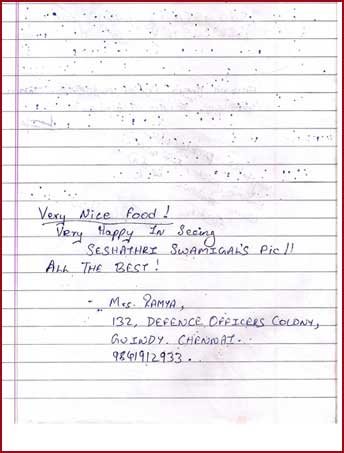 Very Nice Food!
Very Happy In Seeing
SESHATHRI SWAMIGAL'S Pic!!
ALL THE BEST!
- Mrs. RAMYA,
132, DEFENCE OFFICERS COLONY,
GUINDY. CHENNAI.
9841912933.